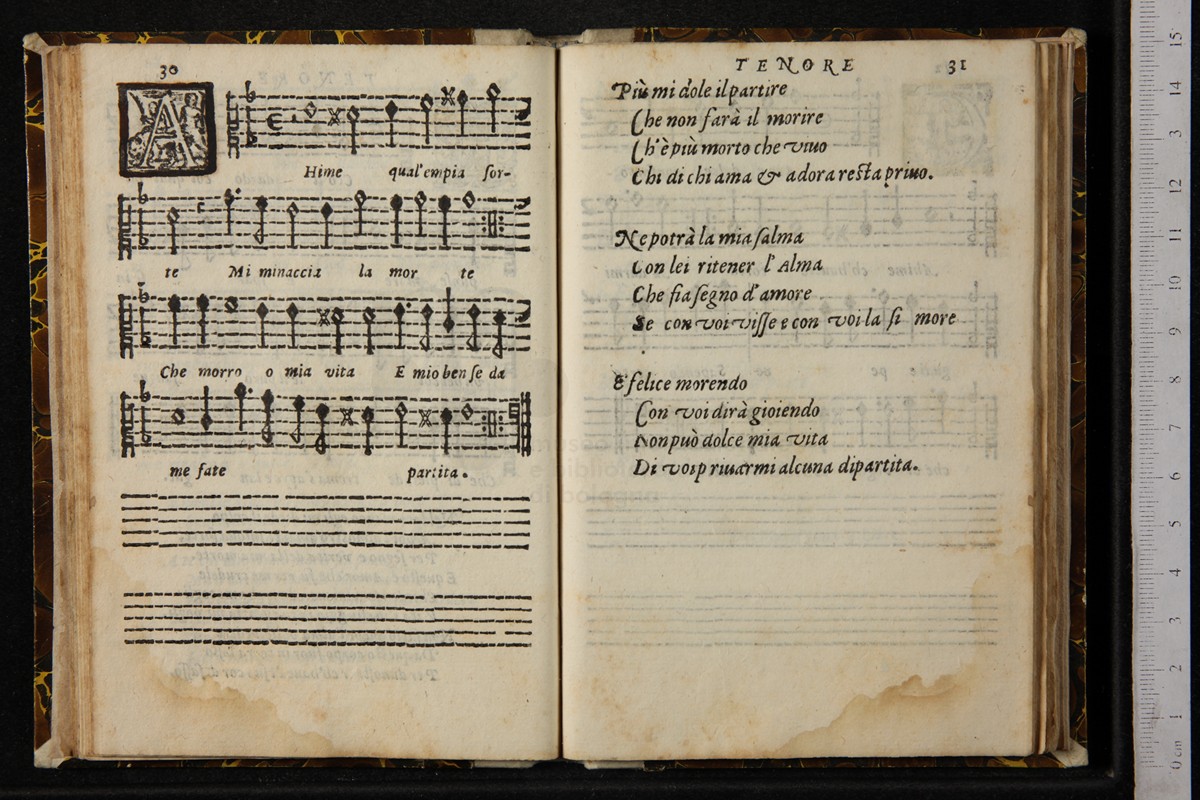 30
A
Hime qual'empia sor-
te Mi minaccia la mor te
Che morro o mia vita E mio ben se da
me fate partita.
TENORE 31
Più mi dole il partire
Che non sarà il morire
Ch'è più morto che viuo
Chi di chi ama & adora resta priuo.
Ne potrà la mia salma
Con lei ritener l'Alma
Che fia segno d'amore
Se con voi visse e con voi la si more
E felice morendo
Con voi dirà gioiendo
Non può dolce mia vita
Di voi priuarmi alcuna dipartita.
15
14
13
12
11
10
9
8
7
6
5
4
3
2
1
0 cm